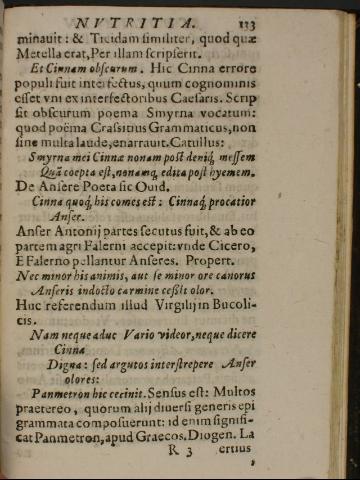 NVTRITIA. 133
minauit: & Ticidam similiter, quod quæ
Metella erat, Per illam scripserit.
Et Cinnam obscurum. Hic Cinna errore
populi fuit interfectus, quum cognominis
esset vni ex interfectoribus Caesaris. Scrip
sit obscurum poema Smyrna vocatum:
quod poëma Crassitius Grammaticus, non
sine multa laude, enarrauit. Catullus:
Smyrna mei Cinnæ nonam post deniq́; messem
Quã coepta est, nonamq́; edita post hyemem.
De Ansere Poeta sic Ouid.
Cinna quoq́; his comes est: Cinnaq́; procatior
Anser.
Anser Antonij partes secutus fuit, & ab eo
partem agri Falerni accepit: vnde Cicero,
E Falerno pellantur Anseres. Propert.
Nec minor his animis, aut se minor ore canorus
Anseris indocto carmine cessit olor.
Huc referendum illud Virgilij in Bucoli-
cis.
Nam neque aduc Vario videor, neque dicere
Cinna
Digna: sed argutos interstrepere Anser
olores:
Panmetron hic cecinit. Sensus est: Multos
praetereo, quorum alij diuersi generis epi
grammata composuerunt: id enim signifi-
cat Panmetron, apud Graecos. Diogen. La
R 3 ertius